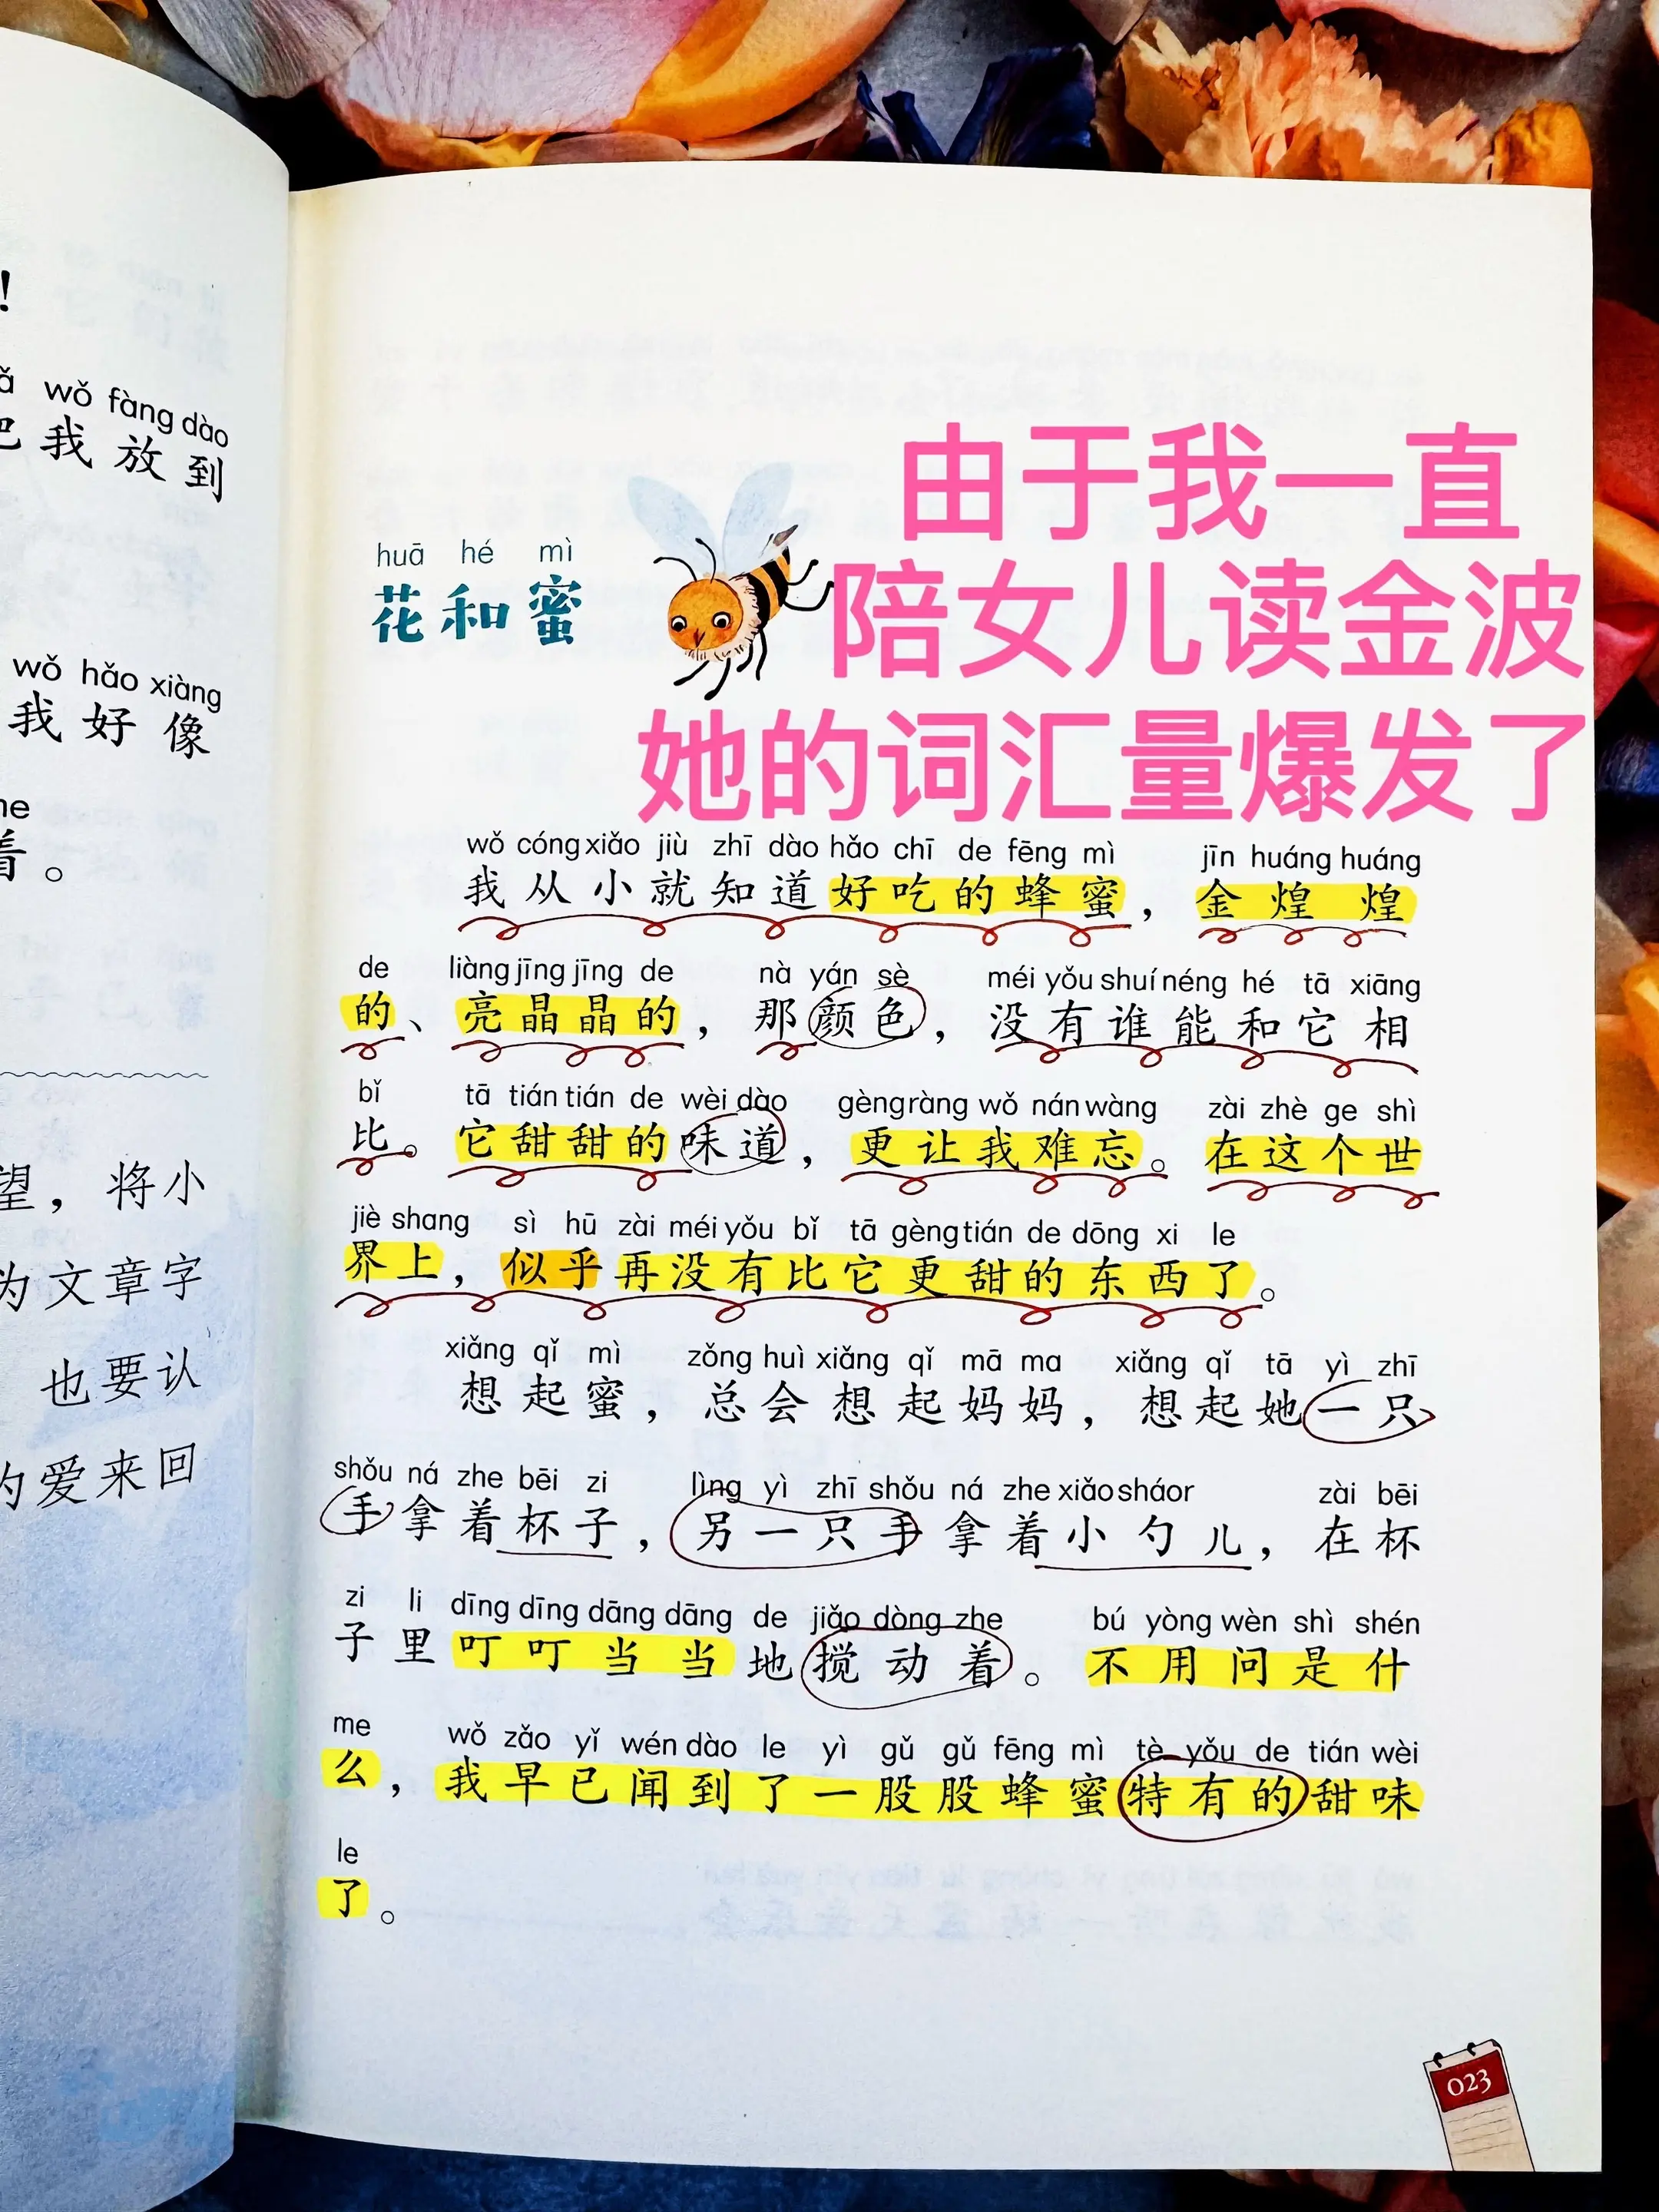 ！
wǒ fàng dào
我放到
wǒ hǎo xiàng
我好像
me
着。
望，将小
为文章字
也要认
的爱来回
由于我一直
陪女儿读金波
她的词汇量爆发了
huā hé mì
花和蜜
wǒ cóng xiǎo jiù zhī dào hǎo chī de fēng mì jīn huáng huáng
我从小就知道好吃的蜂蜜，金煌煌
de liàng jīng jīng de nà yán sè méi yǒu shuí néng hé tā xiāng
的、亮晶晶的，那颜色，没有谁能和它相
bǐ tā tián tián de wèi dào gèng ràng wǒ nán wàng zài zhè ge shì
比。它甜甜的味道，更让我难忘。在这个世
jiè shang sì hū zài méi yǒu bǐ tā gèng tián de dōng xi le
界上，似乎再没有比它更甜的东西了。
xiǎng qǐ mì zǒng huì xiǎng qǐ mā ma xiǎng qǐ tā yì zhī
想起蜜，总会想起妈妈，想起她一只
shǒu ná zhe bēi zi lìng yì zhī shǒu ná zhe xiǎo sháor zài bēi
手拿着杯子，另一只手拿着小勺儿，在杯
zi li dīng dīng dāng dāng de jiǎo dòng zhe bú yòng wèn shì shén
子里叮叮当当地搅动着。不用问是什
me wǒ zǎo yǐ wén dào le yì gǔ gǔ fēng mì tè yǒu de tián wèi
么，我早已闻到了一股股蜂蜜特有的甜味
le
了。
023